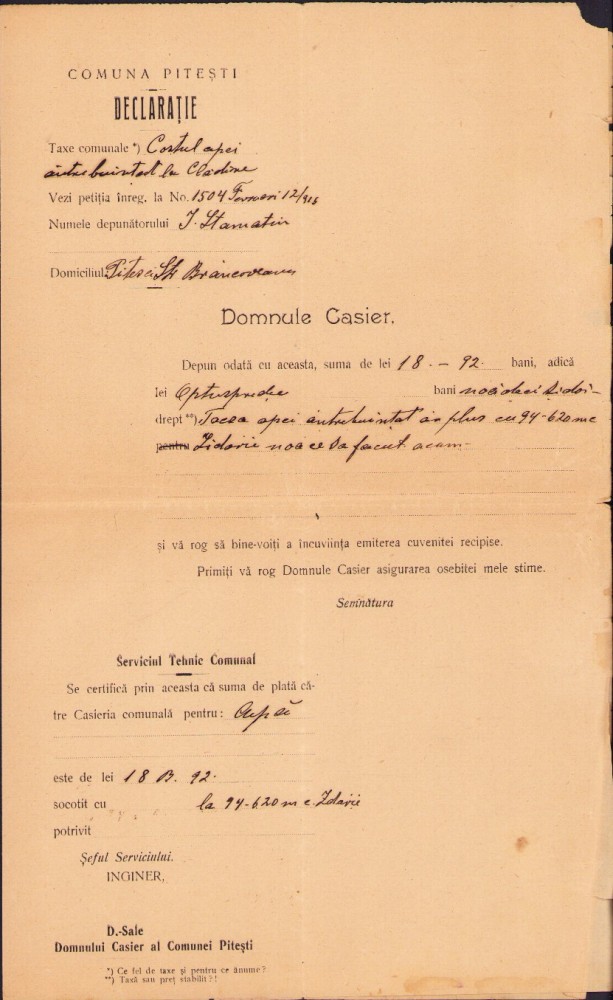 COMUNA PITEȘTI
DECLARAȚIE
Taxe comunale *) Costul apei
întrebuințat la Cladire
Vezi petiția înreg. la No. 1504 Fevruari 12/915
Numele depunătorului I. Stamatin
Domiciliul Pitesci Str Brâncoveanu
Domnule Casier.
Depun odată cu aceasta, suma de lei 18 - 92 - bani, adică
lei Optusprdee bani
drept **) Tacsa apei întrebuintat în plus cu 94-620 mc
pentru Zidarie facut acum
și vă rog să bine-voiți a încuviința emiterea cuvenitei recipise.
Primiți vă rog Domnule Casier asigurarea osebitei mele stime.
Semnătura
Serviciul Tehnic Comunal
Se certifică prin aceasta că suma de plată că-
tre Casieria comunală pentru: Apă
este de lei 18 B. 92.
socotit cu la 94-620 m c. Zidarie
potrivit
Șeful Serviciului.
INGINER,
D.-Sale
Domnului Casier al Comunei Pitești
*) Ce fel de taxe și pentru ce anume?
**) Taxă sau preț stabilit?!